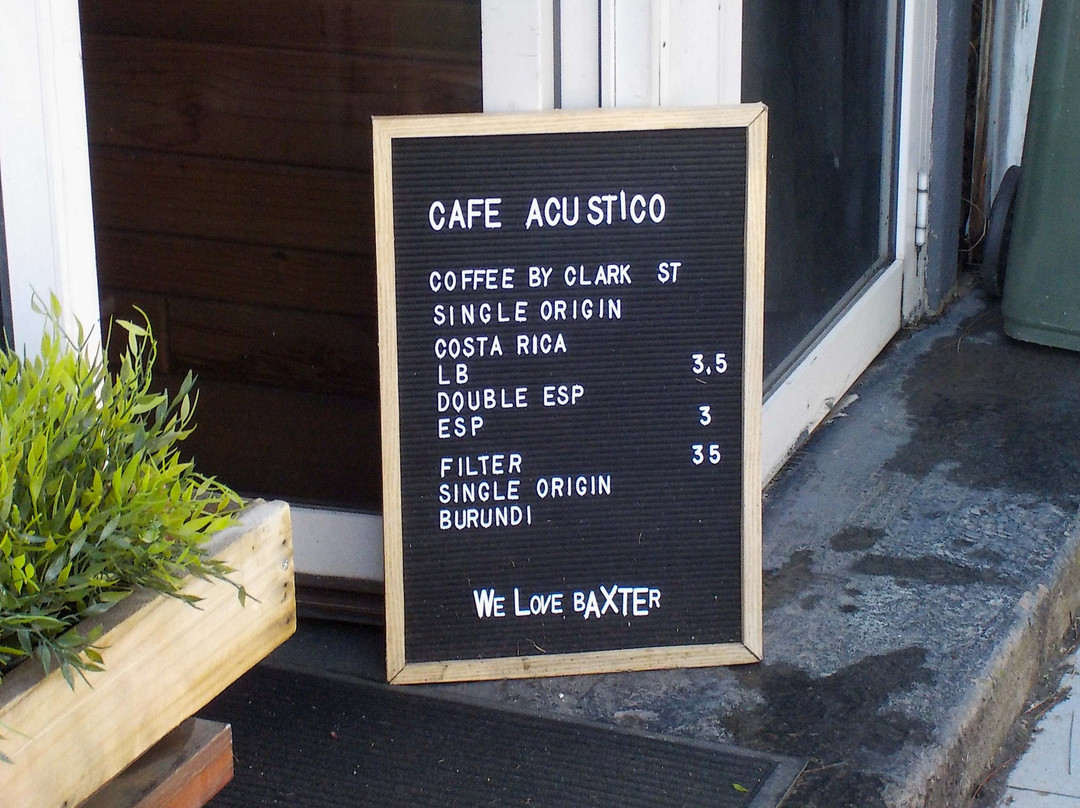 CAFE ACUSTICO
COFFEE BY CLARK ST
SINGLE ORIGIN
COSTA RICA
LB 3.5
DOUBLE ESP
ESP 3
FILTER 35
SINGLE ORIGIN
BURUNDI
WE LOVE BAXTER